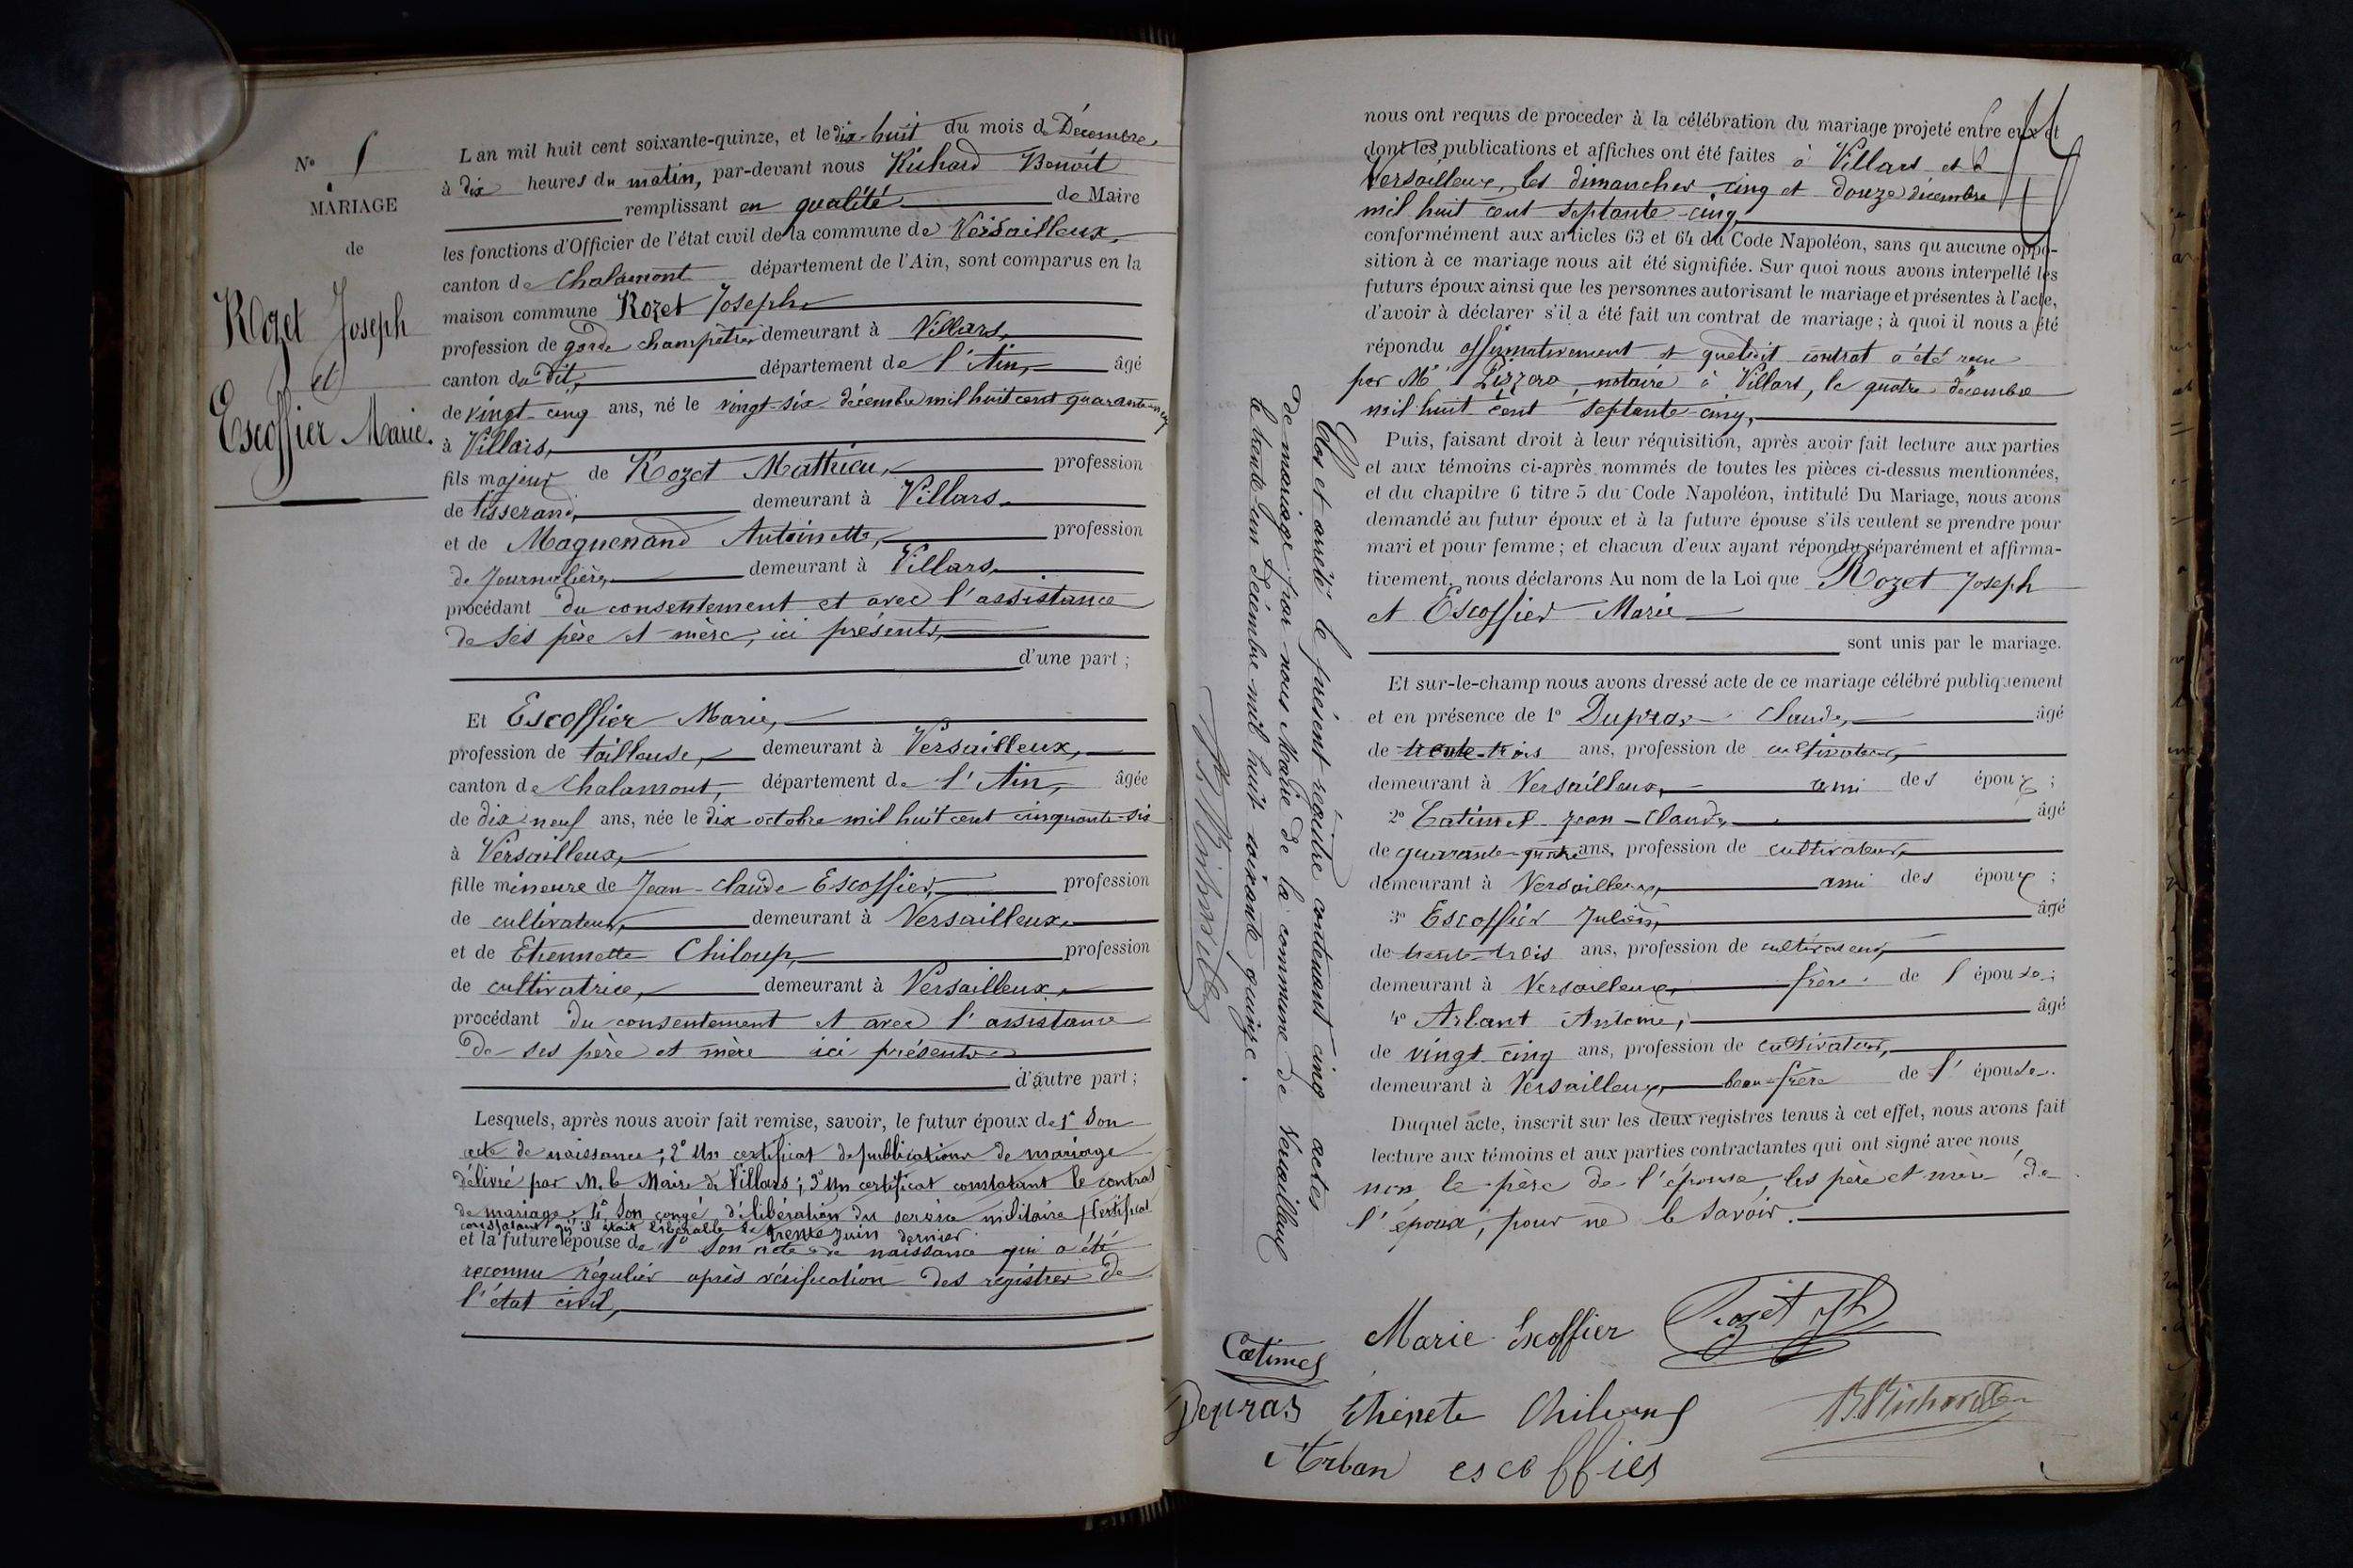 N° 5
MARIAGE
de
Rozet Joseph
et
Escoffier Marie.
L'an mil huit cent soixante-quinze, et le dix-huit du mois de Décembre,
à dix heures du matin, par-devant nous Richard Benoît
remplissant en qualité de Maire
les fonctions d'Officier de l'état civil de la commune de Versailleux,
canton de Chalamont département de l'Ain, sont comparus en la
maison commune Rozet Joseph
profession de garde champêtre demeurant à Villars,
canton du dit, département de l'Ain, âgé
de vingt-cinq ans, né le vingt-six décembre mil huit cent quarante-neuf
à Villars,
fils majeur de Rozet Mathieu, profession
de tisserand, demeurant à Villars
et de Maguenand Antoinette, profession
de Journalière, demeurant à Villars,
procédant du consentement et avec l'assistance
de ses père et mère, ici présents,
d'une part ;
Et Escoffier Marie,
profession de tailleuse, demeurant à Versailleux,
canton de Chalamont, département de l'Ain, âgée
de dix-neuf ans, née le dix octobre mil huit cent cinquante-six
à Versailleux,
fille mineure de Jean-Claude Escoffier, profession
de cultivateur, demeurant à Versailleux,
et de Etiennette Chiloup, profession
de cultivatrice, demeurant à Versailleux,
procédant du consentement et avec l'assistance
de ses père et mère ici présents
d'autre part ;
Lesquels, après nous avoir fait remise, savoir, le futur époux de 1° Son
acte de naissance ; 2° Un certificat de publications de mariage
délivré par M. le Maire de Villars ; 3° Un certificat constatant le contrat
de mariage ; 4° Son congé de libération du service militaire, certificat
constatant qu'il était libérable le trente juin dernier
et la future épouse de 1° Son acte de naissance qui a été
reconnu régulier après vérification des registres de
l'état civil,
nous ont requis de procéder à la célébration du mariage projeté entre eux et
dont les publications et affiches ont été faites à Villars et à
Versailleux, les dimanches cinq et douze décembre
mil huit cent septante-cinq
conformément aux articles 63 et 64 du Code Napoléon, sans qu'aucune oppo-
sition à ce mariage nous ait été signifiée. Sur quoi nous avons interpellé les
futurs époux ainsi que les personnes autorisant le mariage et présentes à l'acte,
d'avoir à déclarer s'il a été fait un contrat de mariage ; à quoi il nous a été
répondu affirmativement et que ledit contrat a été reçu
par Me notaire à Villars, le quatre décembre
mil huit cent septante-cinq,
Puis, faisant droit à leur réquisition, après avoir fait lecture aux parties
et aux témoins ci-après nommés de toutes les pièces ci-dessus mentionnées,
et du chapitre 6 titre 5 du Code Napoléon, intitulé Du Mariage, nous avons
demandé au futur époux et à la future épouse s'ils veulent se prendre pour
mari et pour femme ; et chacun d'eux ayant répondu séparément et affirma-
tivement, nous déclarons Au nom de la Loi que Rozet Joseph
et Escoffier Marie
sont unis par le mariage.
Et sur-le-champ nous avons dressé acte de ce mariage célébré publiquement
et en présence de 1° Dupras Claude, âgé
de trente-trois ans, profession de cultivateur,
demeurant à Versailleux, ami des époux ;
2° Catimel Jean-Claude âgé
de quarante-quatre ans, profession de cultivateur,
demeurant à Versailleux, ami des époux ;
3° Escoffier Julien, âgé
de trente-trois ans, profession de cultivateur,
demeurant à Versailleux, frère de l'épouse ;
4° Arbant Antoine, âgé
de vingt-cinq ans, profession de cultivateur,
demeurant à Versailleux, beau-frère de l'épouse.
Duquel acte, inscrit sur les deux registres tenus à cet effet, nous avons fait
lecture aux témoins et aux parties contractantes qui ont signé avec nous,
non le père de l'épouse, les père et mère de
l'époux, pour ne le savoir.
Clos et arrêté le présent registre contenant cinq actes
de mariage par nous Maire de la commune de Versailleux
le trente-un Décembre mil huit soixante quinze.
B. Richard
Marie Escoffier Rozet Jh
Catimel
Depras Etienete Chiloup B. Richard
Arban escoffier